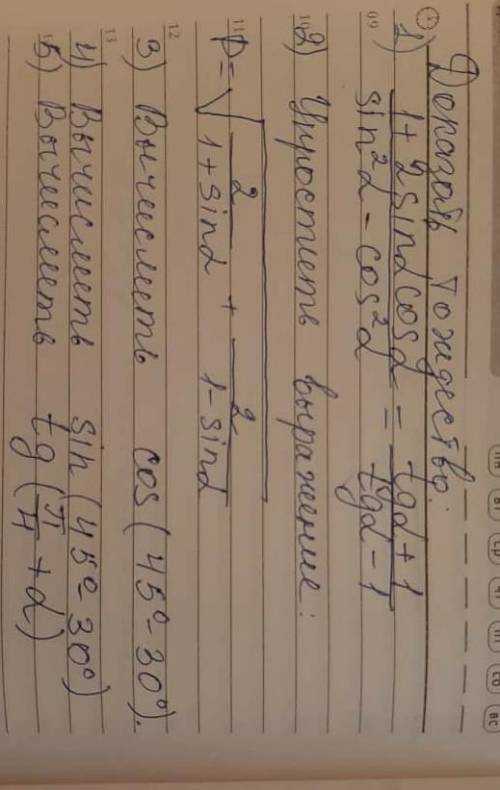 Доказать тождество:
1) (1 + 2sinα cosα)/(sin²α - cos²α) = (tgα + 1)/(tgα - 1)
2) Упростить выражение:
P = √(2/(1 + sinα) + 2/(1 - sinα))
3) Вычислить cos(45° - 30°).
4) Вычислить sin(45° - 30°)
5) Вычислить tg(π/4 + α)
пн вт ср чт пт сб вс
09
10
11
12
13